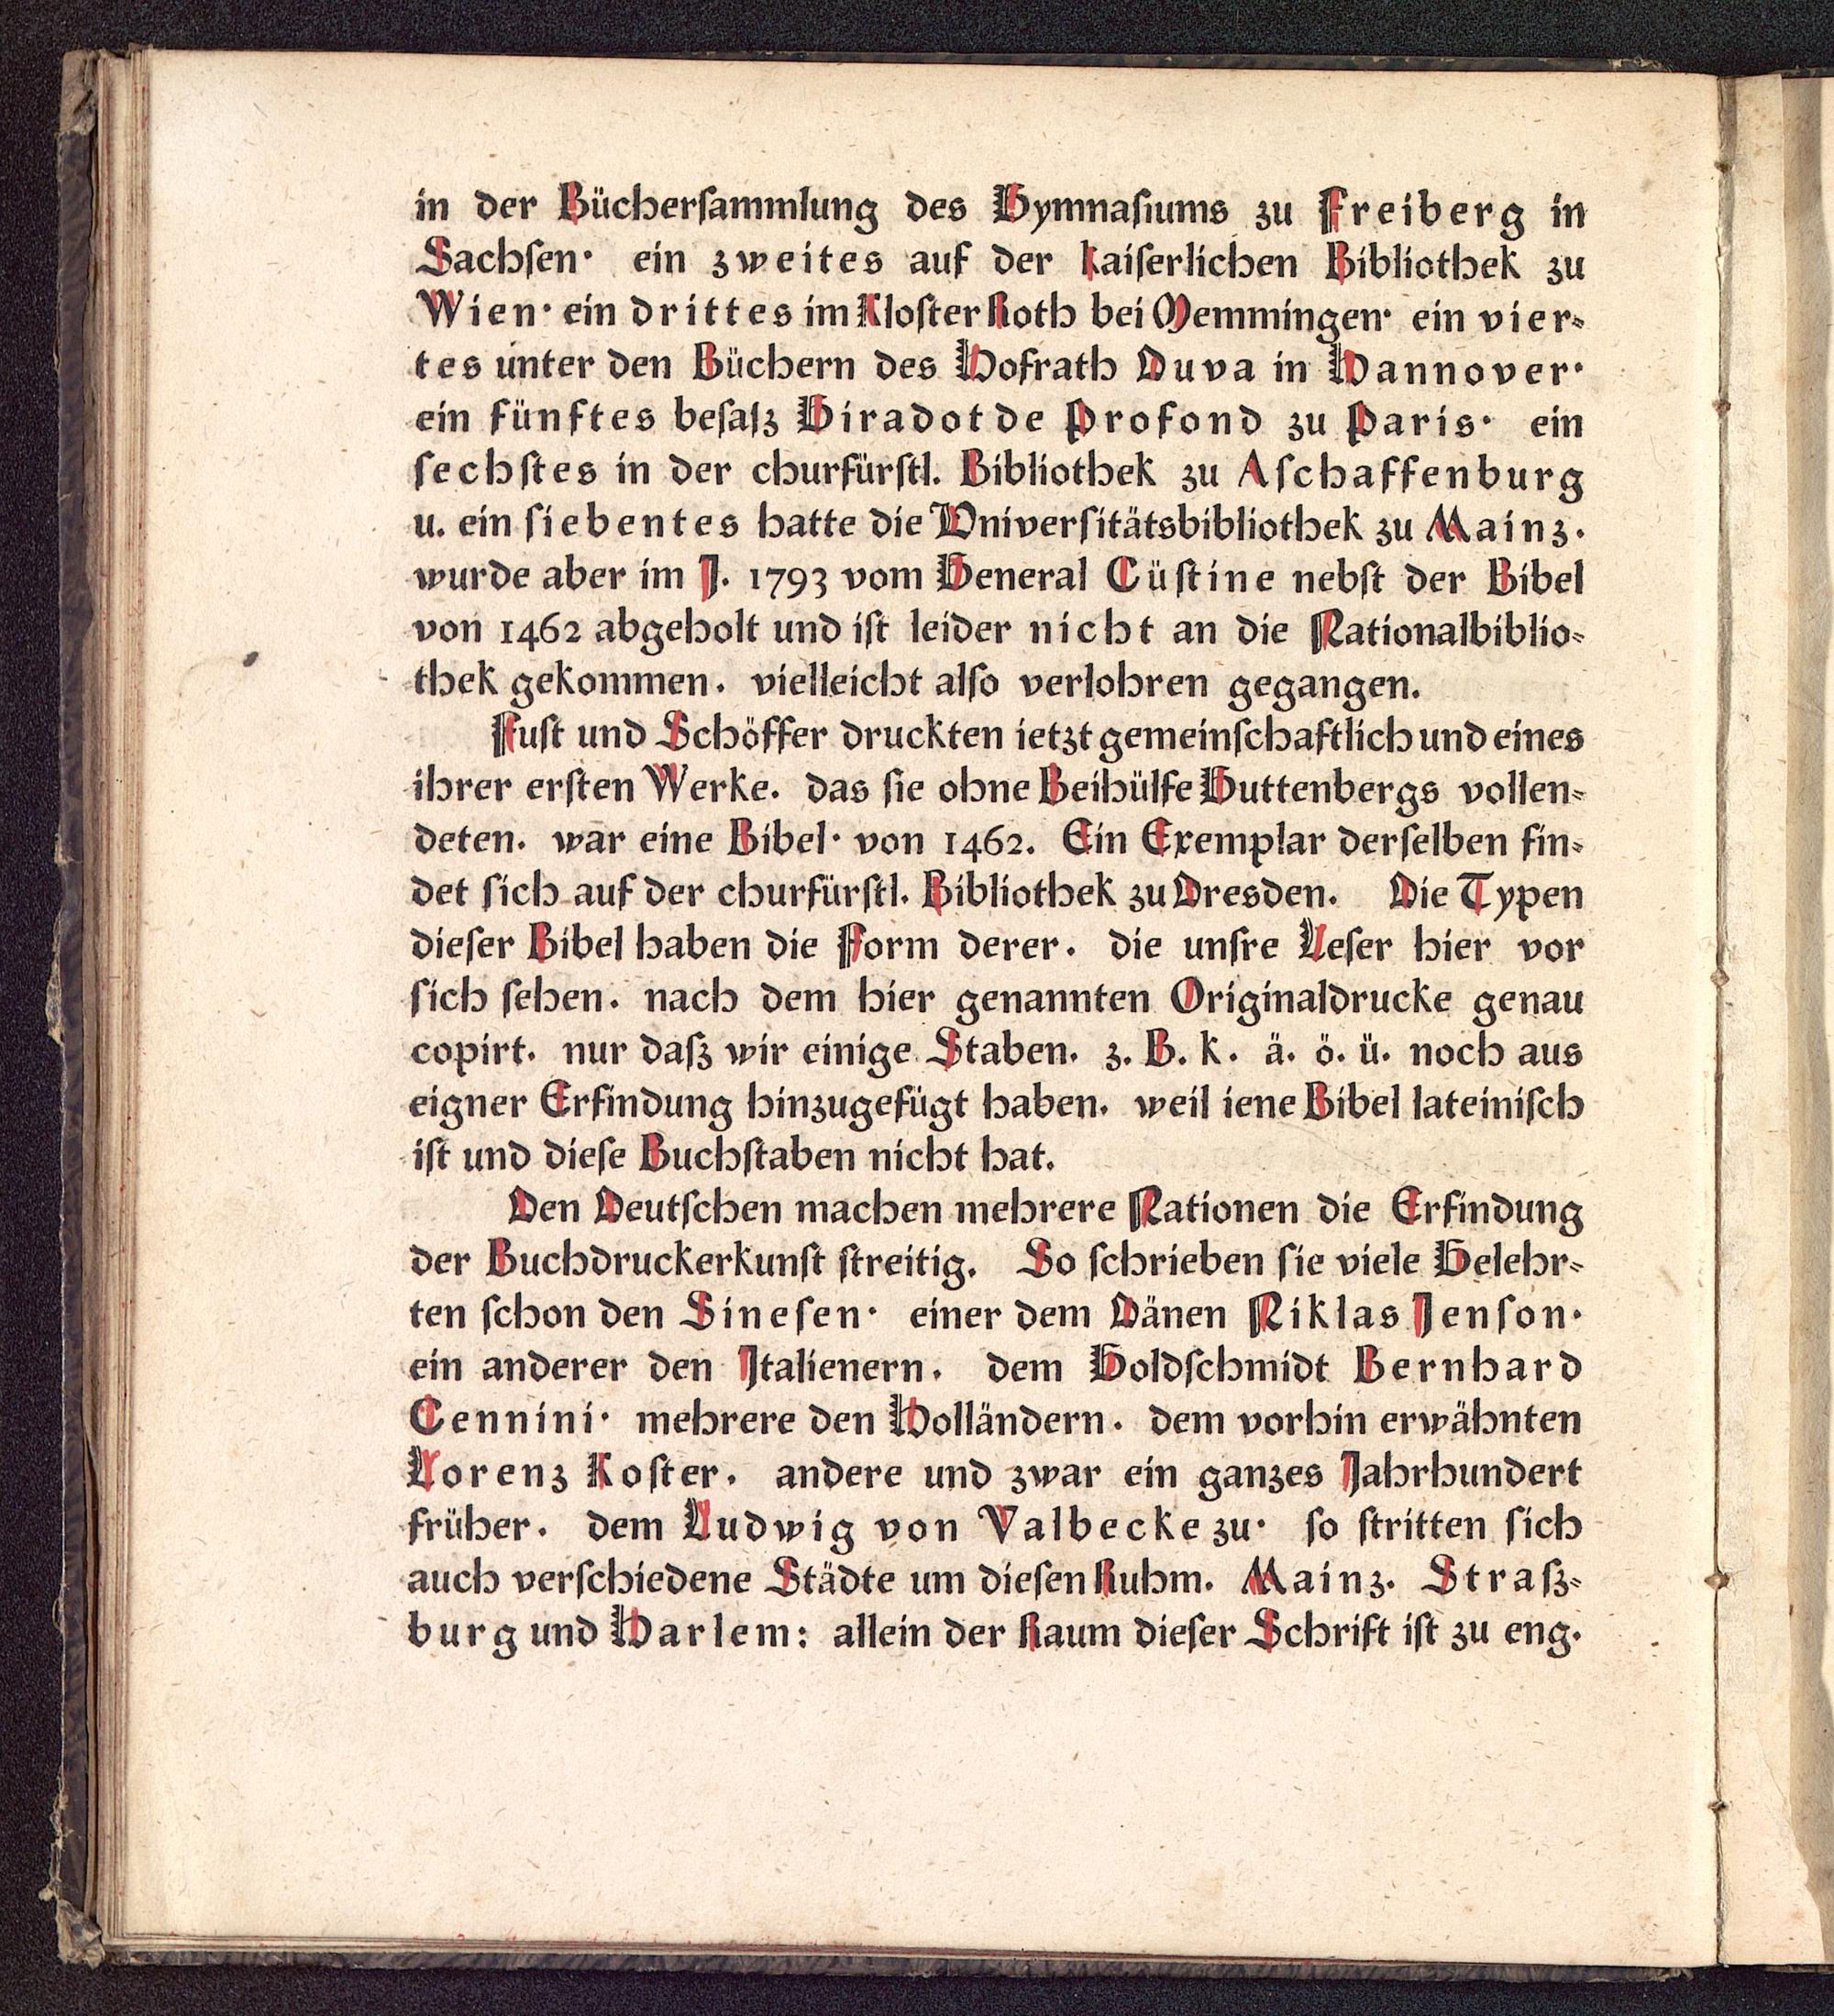 in der Bücherſammlung des Gymnaſiums zu Freiberg in
Sachſen· ein zweites auf der kaiſerlichen Bibliothek zu
Wien· ein drittes im Kloſter Roth bei Memmingen· ein vier-
tes unter den Büchern des Hofrath Duva in Hannover·
ein fünftes beſaſz Giradot de Profond zu Paris· ein
ſechſtes in der churfürſtl. Bibliothek zu Aſchaffenburg
u. ein ſiebentes hatte die Univerſitätsbibliothek zu Mainz.
wurde aber im J. 1793 vom General Cüſtine nebſt der Bibel
von 1462 abgeholt und iſt leider nicht an die Nationalbiblio-
thek gekommen. vielleicht alſo verlohren gegangen.
Fuſt und Schöffer druckten ietzt gemeinſchaftlich und eines
ihrer erſten Werke. das ſie ohne Beihülfe Guttenbergs vollen-
deten. war eine Bibel· von 1462. Ein Exemplar derſelben fin-
det ſich auf der churfürſtl. Bibliothek zu Dresden. Die Typen
dieſer Bibel haben die Form derer. die unſre Leſer hier vor
ſich ſehen. nach dem hier genannten Originaldrucke genau
copirt. nur daſz wir einige Staben. z. B. k. ä. ö. ü. noch aus
eigner Erfindung hinzugefügt haben. weil iene Bibel lateiniſch
iſt und dieſe Buchſtaben nicht hat.
Den Deutſchen machen mehrere Nationen die Erfindung
der Buchdruckerkunſt ſtreitig. So ſchrieben ſie viele Gelehr-
ten ſchon den Sineſen· einer dem Dänen Niklas Jenſon·
ein anderer den Italienern. dem Goldſchmidt Bernhard
Cennini· mehrere den Holländern. dem vorhin erwähnten
Lorenz Koſter. andere und zwar ein ganzes Jahrhundert
früher. dem Ludwig von Valbecke zu· ſo ſtritten ſich
auch verſchiedene Städte um dieſen Ruhm. Mainz. Straſz-
burg und Harlem: allein der Raum dieſer Schrift iſt zu eng.